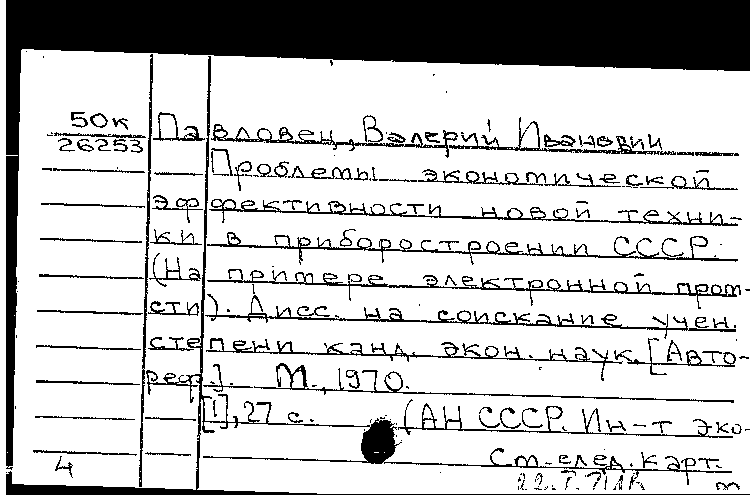 50к
26253
Павловец, Валерий Иванович
Проблемы экономической
эффективности новой техни-
ки в приборостроении СССР.
(На примере электронной пром-
сти). Дисс. на соискание учен.
степени канд. экон. наук. [Авто-
реф.]. М., 1970.
[1], 27 с. (АН СССР. Ин-т эко-
См. след. карт.
4